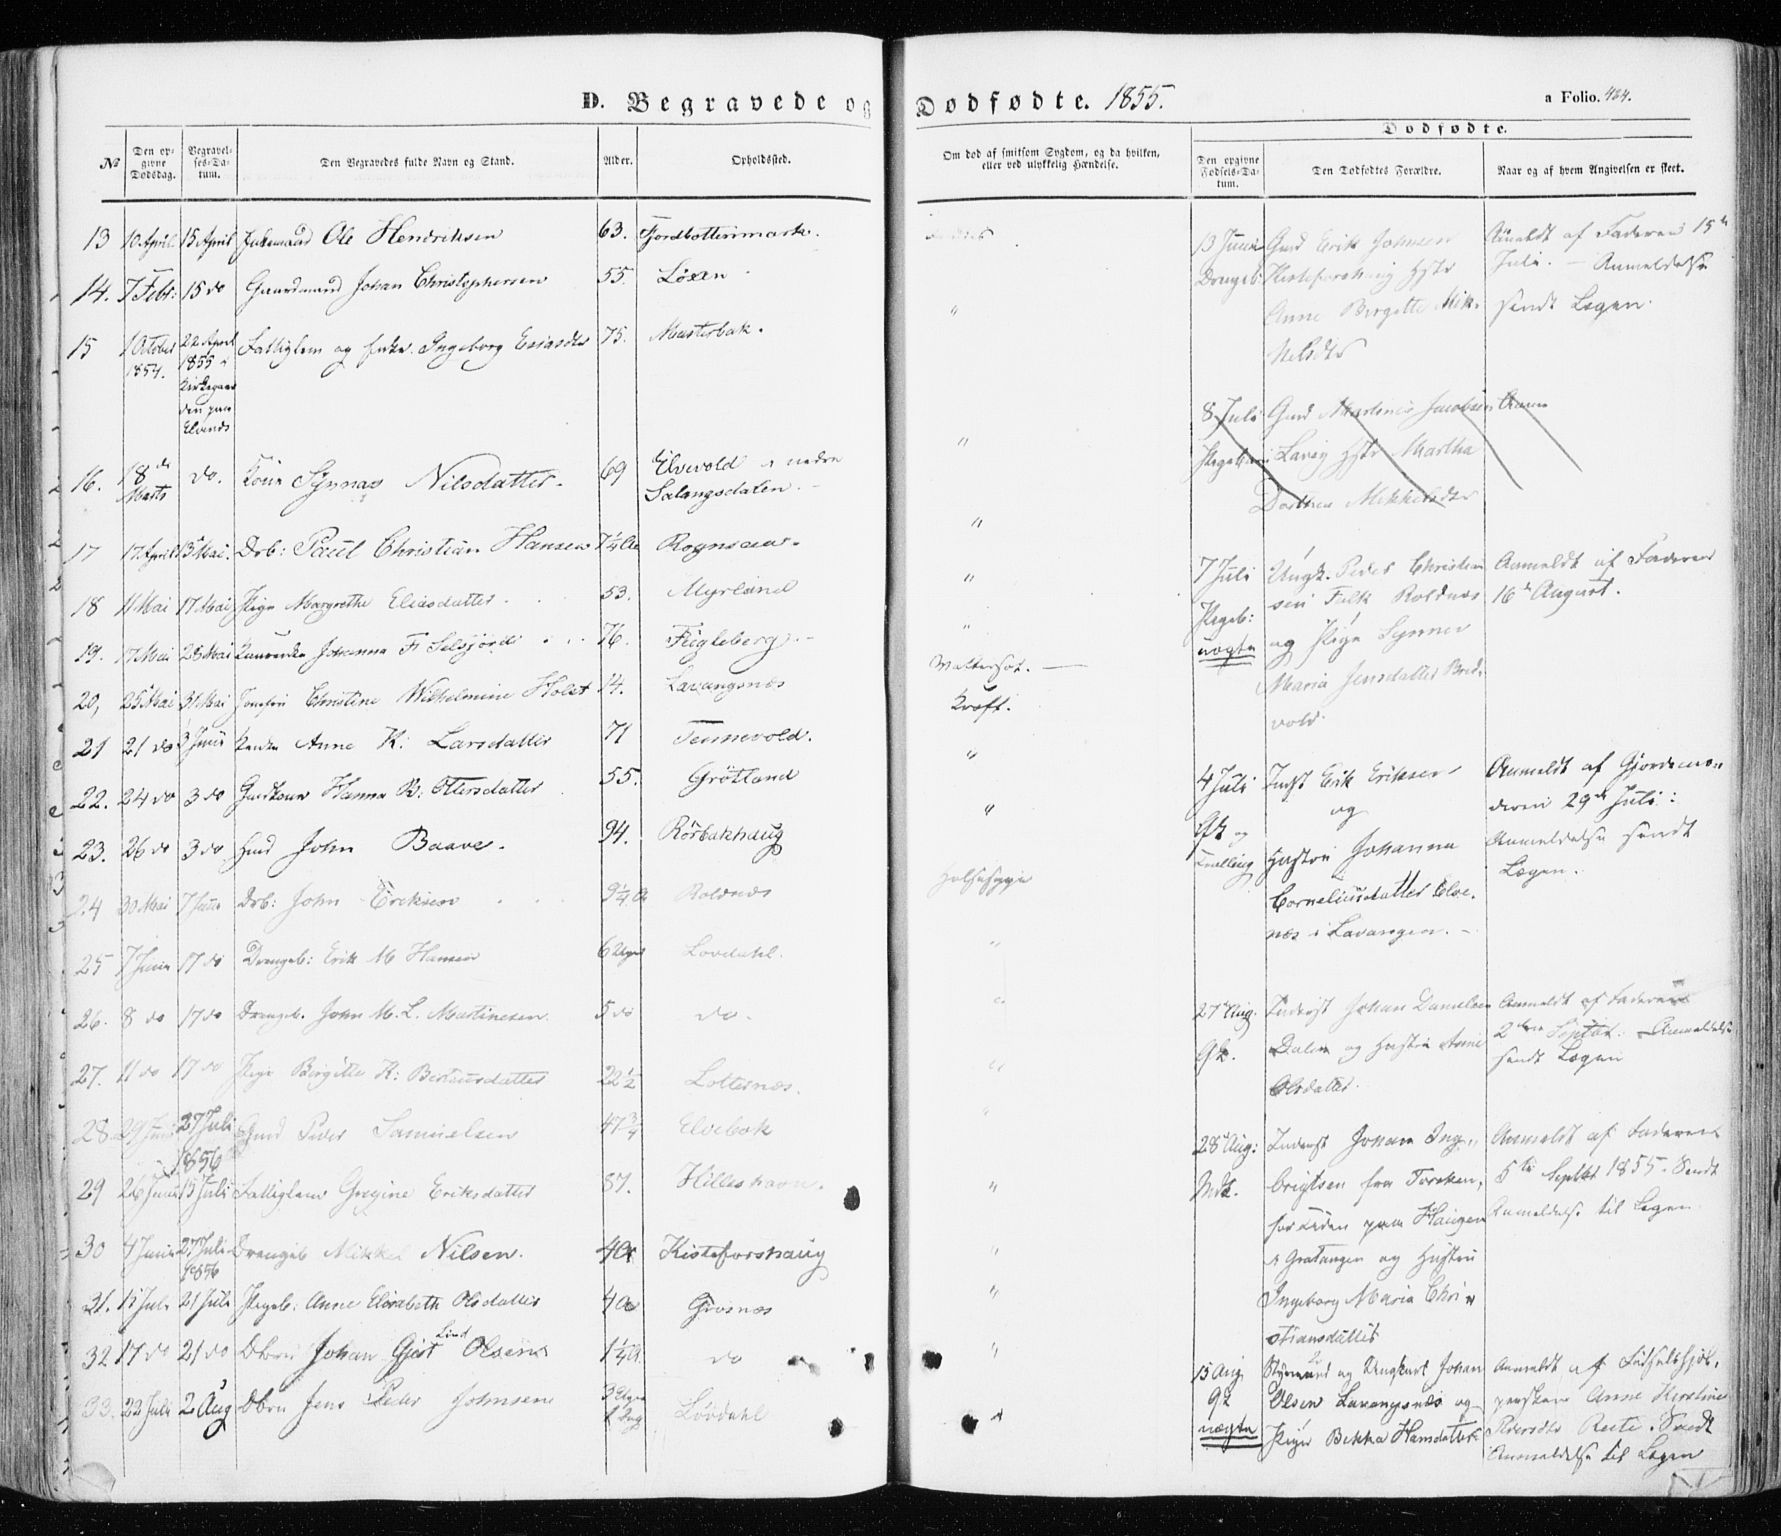 D. Begravede og Dødfødte. 1855.
a Folio. 424.
№
Den opgivne Dødsdag.
Begravelses-Datum.
Den Begravedes fulde Navn og Stand.
Alder.
Opholdssted.
Om død af smitsom Sygdom, og da hvilken, eller ved ulykkelig Hændelse.
Dødfødte.
Den opgivne Fødsels-Datum.
Den Dødfødtes Forældre.
Naar og af hvem Angivelsen er skeet.
13 10 April 15 April Ole Hendriksen 63. Fjordbottenmark.
14. 7 Febr: 15 do Gaardmand Johan Christophersen 55. Løxen
15 1 October 1854. 22 April 1855 i Kirkegaarden paa Elvenes Fattiglem og Enke Ingeborg Esiasdtr 75. Mustervak.
16. 18de Marts do. Kone Synnas Nilsdatter. 69 Elvevold i nedre Salangsdalen. "
17 17 April 13 Mai. Drb: Paul Christian Hansen 7 1/4 Aar Rognsaas. "
18 11 Mai 17 Mai Pige Margrethe Eliasdatter. 53. Myrland "
19. 17 Mai 28 Mai Johanna F. Selsjord 76. Fugleberg. "
20, 25 Mai 31 Mai Jomfru Christine Wilhelmine Holst 14. Lavangsnæs Wattersot.
21 21 do 3 Juni Enke Anne K: Larsdatter 71 Tennevold. Kræft.
22. 24 do 3 do Gmdkone Hanna B: Ottersdatter 55. Grötland "
23. 26 do 3 do John Baave. 94. Rörbakhaug "
24 30 Mai 7 Juni Drb: John Eriksen 9 1/4 A Roldnæs Halssyge
25 7 Juni 17 do Drengeb: Erik M Hansen 6 Uger Lovdahl. "
26. 8 do 17 do Drengeb. John M. L. Martinesen. 5 do do. "
27. 11 do 17 do Pige Birgitte K: Bertheusdatter 22 1/2 Lottesnæs. "
28 29 Juni 27 Juli 1856 Gmd Peder Samuelsen 47 3/4 Elvebak "
29 26 Juni 15 Juli Fattiglem Gregine Eriksdatter 87. Hilleshavn. "
30 4 Juni 27 Juli 1856 Drengeb Mikkel Nilsen. 4 A Kisteforshaug "
31. 15 Juli 21 Juli Pigeb: Anne Elisabeth Olsdatter 4 A Grosnæs "
32 17 do 21 do Dbrn Johan Gjert Lind Olsen 1 1/4 A. do "
33. 22 Juli 2 Aug Dbrn Jens Peder Johnsen 3 Uger 1 Dag Lövdahl "
13 Juni Drengeb: Gmd Erik Johnsen Kisteforshaug Hstr Anne Birgitte Mikkelsdtr
Anmeldt af Faderen 15de Juli. – Anmeldelse sendt Lægen.
8 Juli Pigebarn Gmd Martinus Jacobsen Lavang Hstr Martha Dorthea Mikkelsdtr
Anm
7 Juli Pigeb: uægte Ungk. Peder Christiansen Falk Roldnæs og Pige Synner Maria Jensdatter Bredvold.
Anmeldt af Faderen 16de August.
4 Juli Qk og Tvilling Indst Erik Eriksen og Hustru Johanna Corneliusdatter Elvenæs i Lavangen. –
Anmeldt af Gjordemoderen 29de Juli: Anmeldelse sendt Lægen.
27 Aug. Qk. Inderst Johan Danielsen Dalen og Hustru Anne Olsdatter.
Anmeldt af Faderen 2den Septbr. Anmeldelse sendt Lægen
28 Aug: Mdk. Inderst Johan Ingbrigtsen fra Foreken, for Tiden paa Haugen i Gratangen og Hustru Ingeborg Maria Christiansdatter
Anmeldt af Faderen 5te Septbr 1855. Sendt Anmeldelse til Lægen.
15 Aug Qk uægte Styrmand og Ungkarl Johan Olsen Lavangsnæs og Pige Bekka Hansdatter
Anmeldt af Födselshjelpersken Anne Kerstine Pedersdtr Reite. Sendt Anmeldelse til Lægen